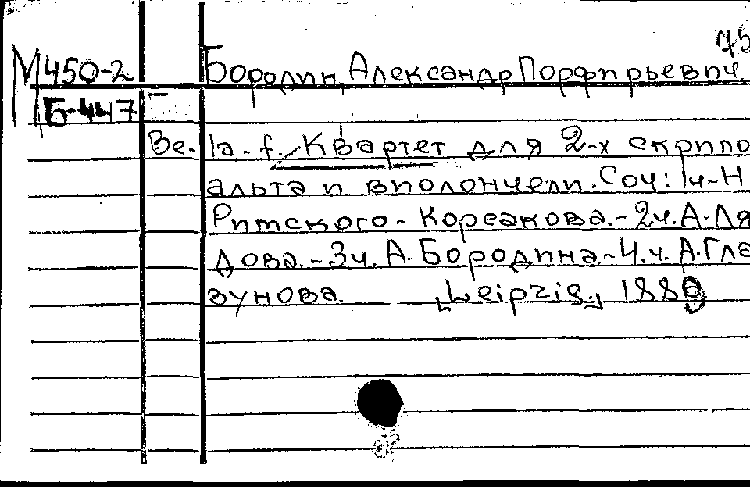 75
М450-2 Бородин, Александр Порфирьевич.
Б-447
Ве-la-f. Квартет для 2-х скрипо
альта и виолончели. Соч: 1ч-Н
Римского-Корсакова.-2ч. А.Ля
дова.-3ч. А.Бородина-4.ч. А.Гла
зунова. „Leipzig„ 188